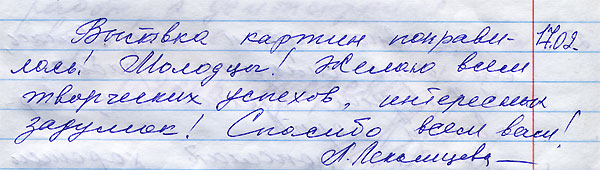 Выствка картин понрави- 17.02.
лась! Молодцы! Желаю всем
творческих успехов, интересных
задумок! Спасибо всем вам!
Л.